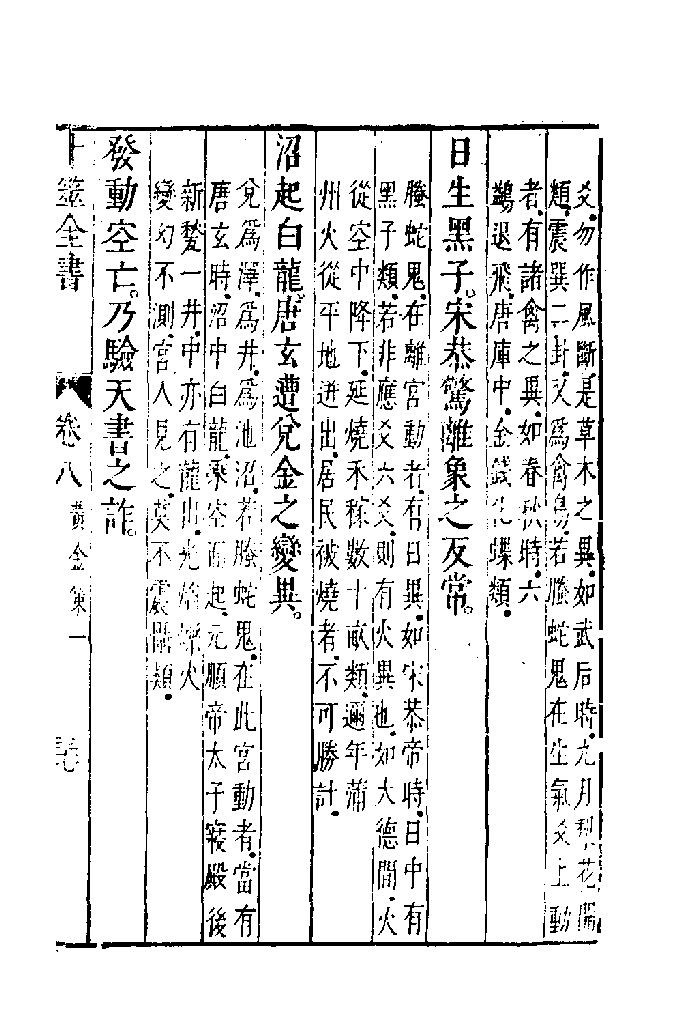 爻。勿作風斷。是草木之異。如武后時。九月梨花開
類。震巽二卦。又爲禽鳥。若螣蛇鬼在生氣爻上動
者。有諸禽之異。如春秋時。六
鷁退飛。唐庫中。金錢化蝶類。
日生黑子。宋恭驚離象之反常。
螣蛇鬼。在離宮動者。有日異。如宋恭帝時。日中有
黑子類。若非應爻六爻。則有火異也。如大德間。火
從空中降下。延燒禾稼數十畝類。邇年蒲
州火從平地迸出。居民被燒者。不可勝計。
沼起白龍。唐玄遭兌金之變異。
兌爲澤。爲井。爲池沼。若螣蛇鬼。在此宮動者。當有
唐玄時。沼中白龍。乘空而起。元順帝太子寢殿後
新甃一井。中亦有龍出。光焰爍火
變幻不測。宮人見之。莫不震懾類。
發動空亡。乃驗天書之詐。
卜筮全書
卷八
黃金策一